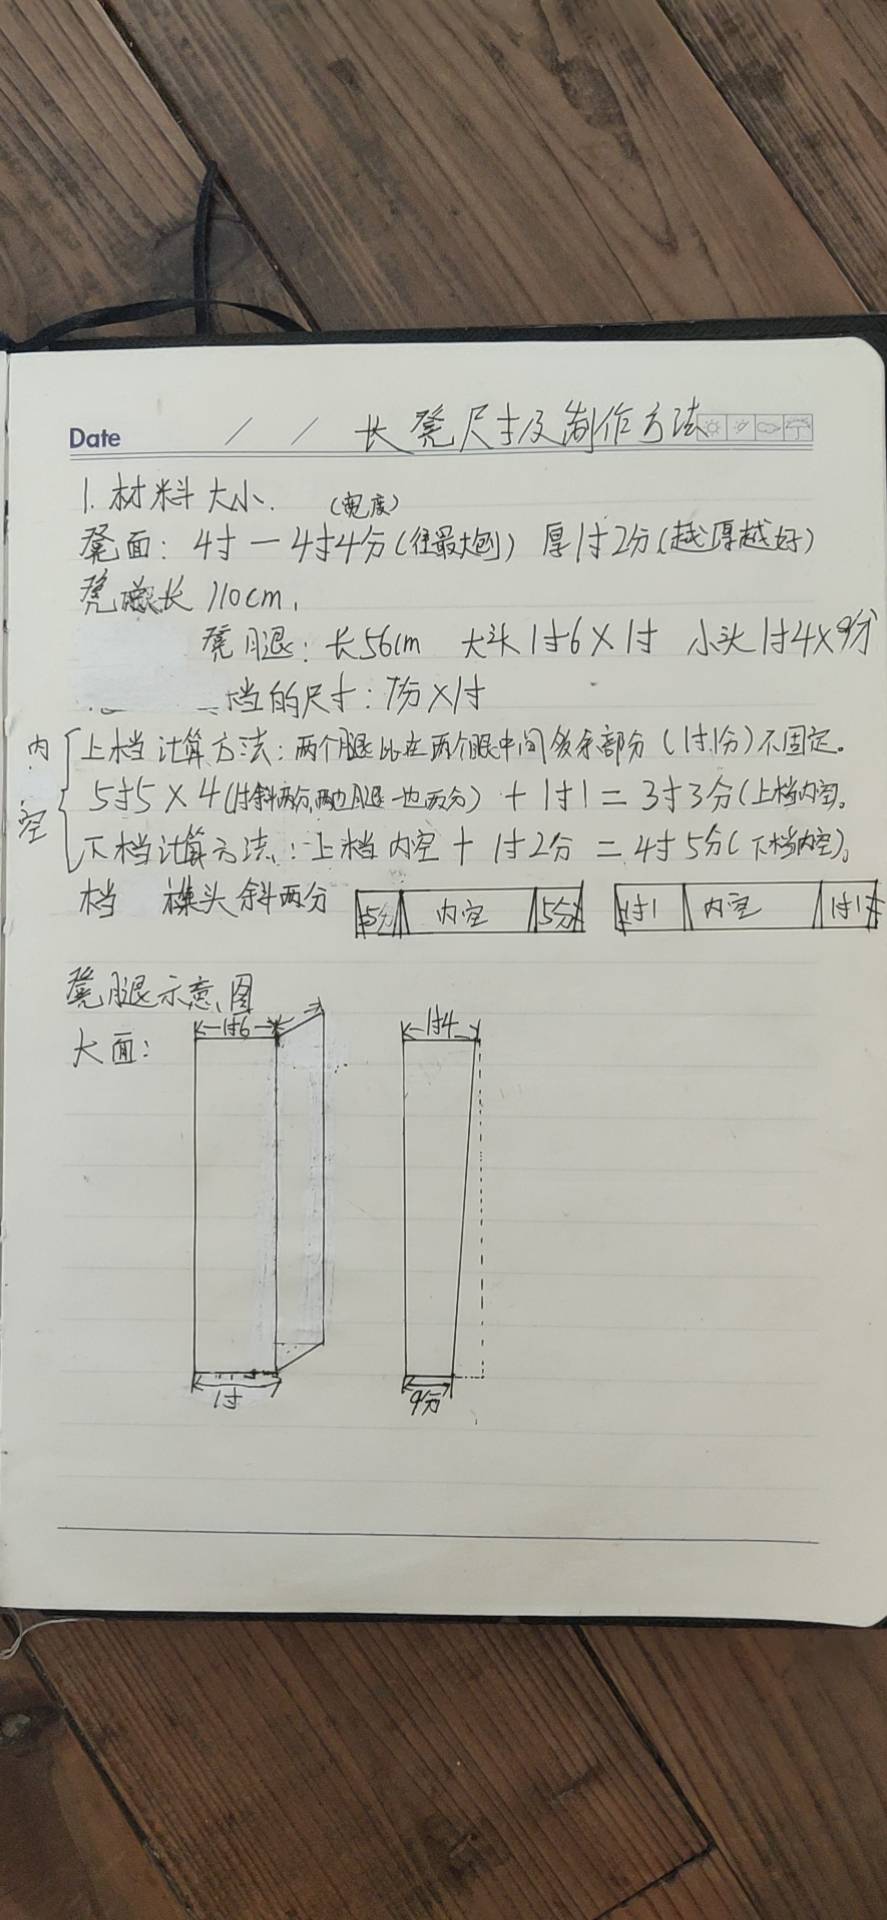 Date / / 长凳尺寸及制作方法
1.材料大小.
(宽度)
凳面: 4寸一4寸4分(往最大刨) 厚1寸2分(越厚越好)
凳总长 110cm.
凳腿: 长56cm 大头1寸6×1寸 小头1寸4×9分
档的尺寸: 7分×1寸
内空
上档计算方法: 两个腿比在两个眼中间多余部分(1寸1分)不固定。
5寸5×4(1寸斜两分,两边腿一边两分)+1寸1=3寸3分(上档内空)。
下档计算方法: 上档内空+1寸2分=4寸5分(下档内空)。
档 榫头斜两分
5分 内空 5分
1寸1 内空 1寸1
凳腿示意图
大面:
1寸6
1寸4
1寸
9分